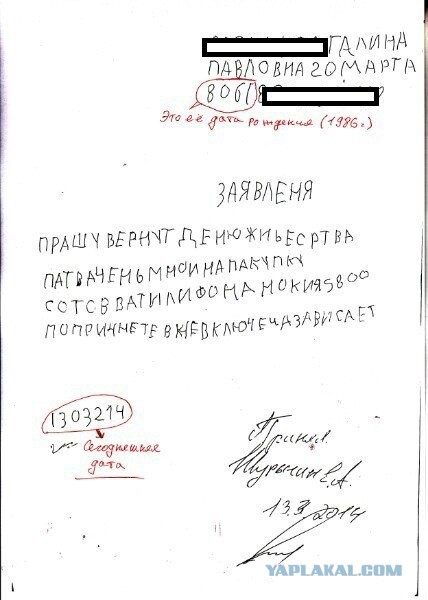 ГАЛИНА
ПАВЛОВИА 20 МАРТА
8061
Это её дата рождения (1986г)
ЗАЯВЛЕНЯ
ПРАШУ ВЕРНУТ ДЕНЮЖИ ЬЕСРТВА
ПАТВАЧЕНЬ МНОИ НА ПАКУПКУ
СОТОВВА ТИЛИФОМА НОКИЯ 5800
ПО ПРИЧНЕТЕ ВЖЕ ВКЛЮЧЕЦА ЗАВИСАЕТ
1303214
Сегодняшняя
дата
Принял
Е.А.
13.3 2014
YAPLAKAL.COM